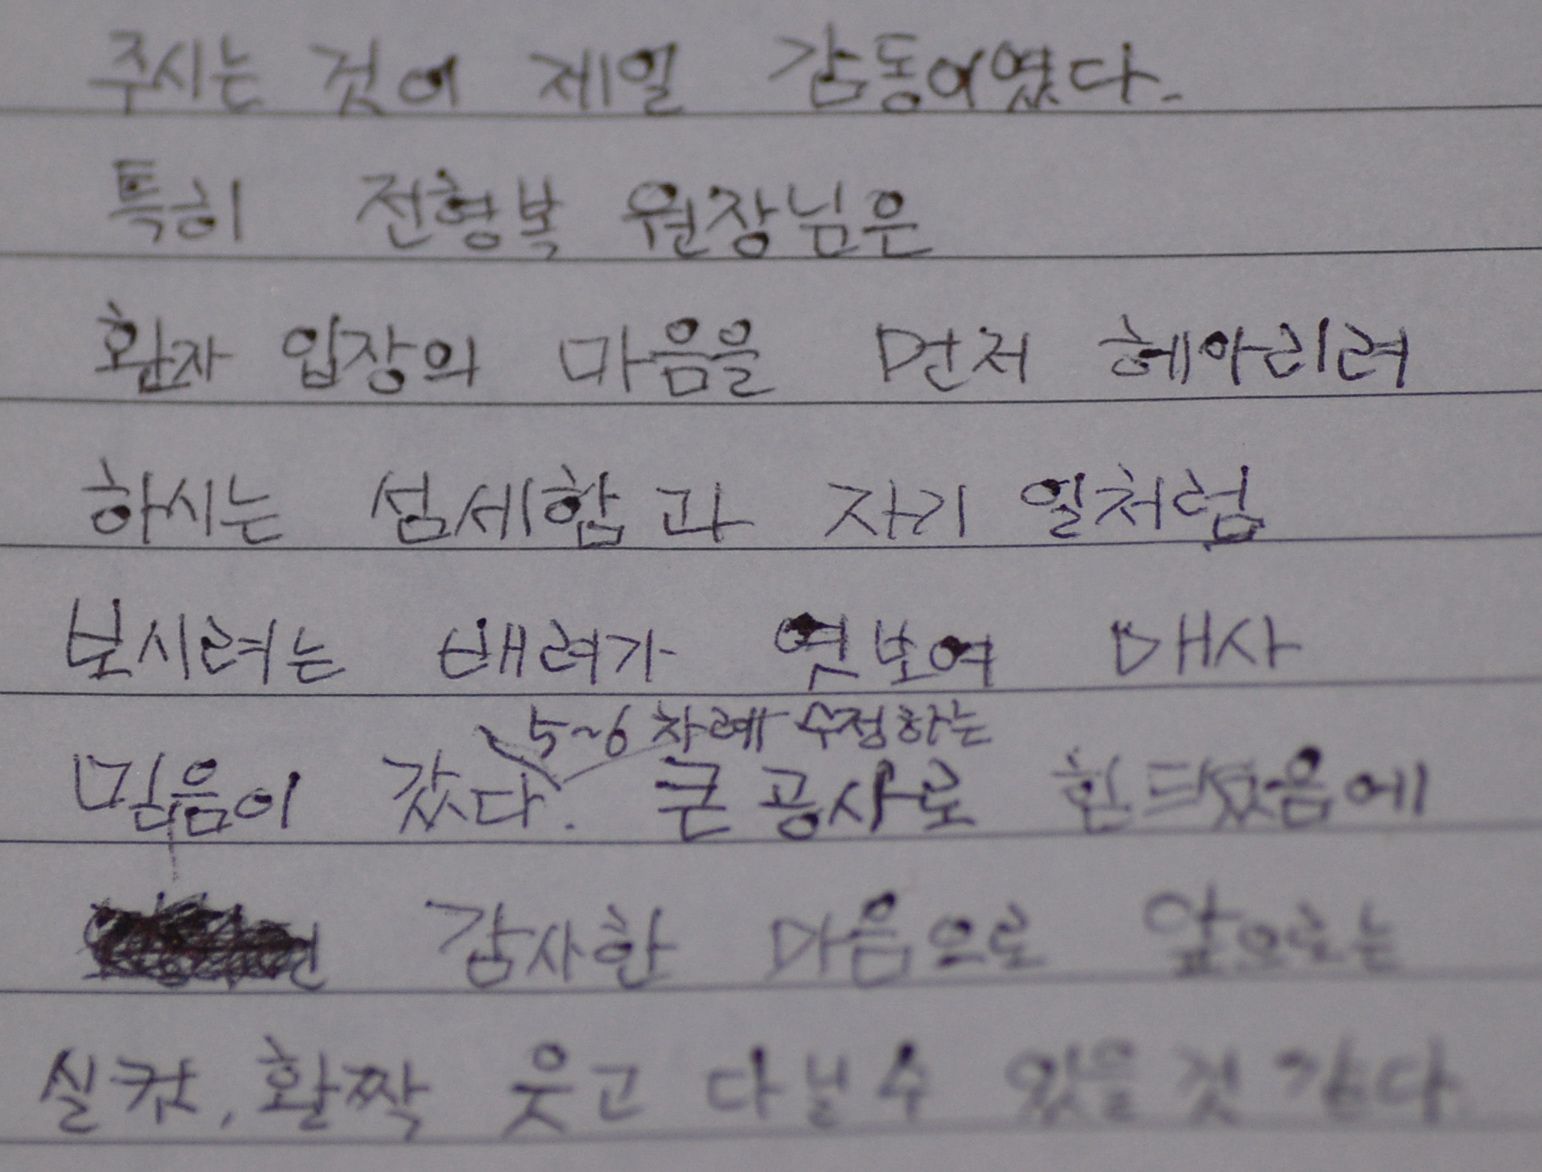 주시는 것이 제일 감동이였다.
특히 전형복 원장님은
환자 입장의 마음을 먼저 헤아리려
하시는 섬세함과 자기 일처럼
보시려는 배려가 엿보여 매사
믿음이 갔다. 5~6 차례 수정하는 큰 공사로 힘드셨음에
감사한 마음으로 앞으로는
실컷, 활짝 웃고 다닐 수 있을 것 같다.